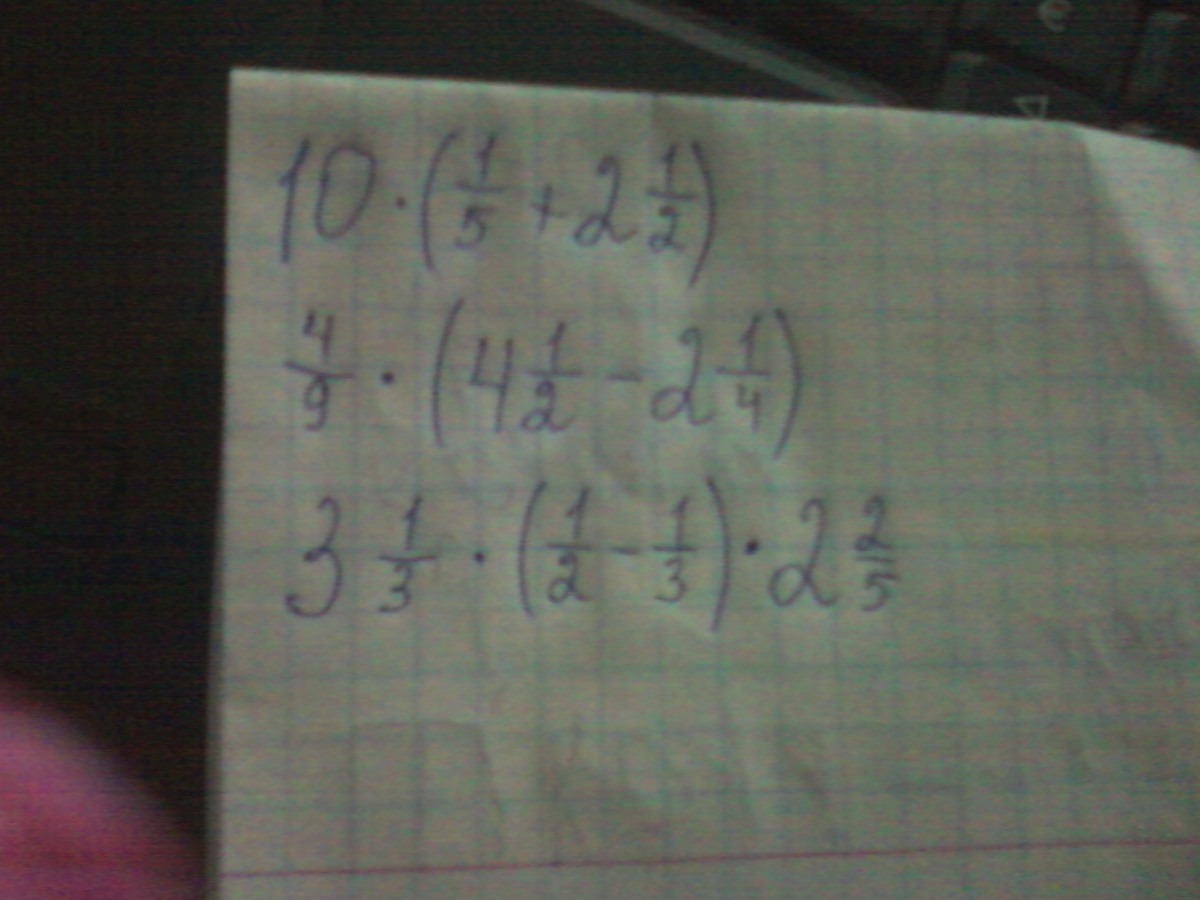 10 · (1/5 + 2 1/2)
4/9 · (4 1/2 - 2 1/4)
3 1/3 · (1/2 - 1/3) · 2 2/5